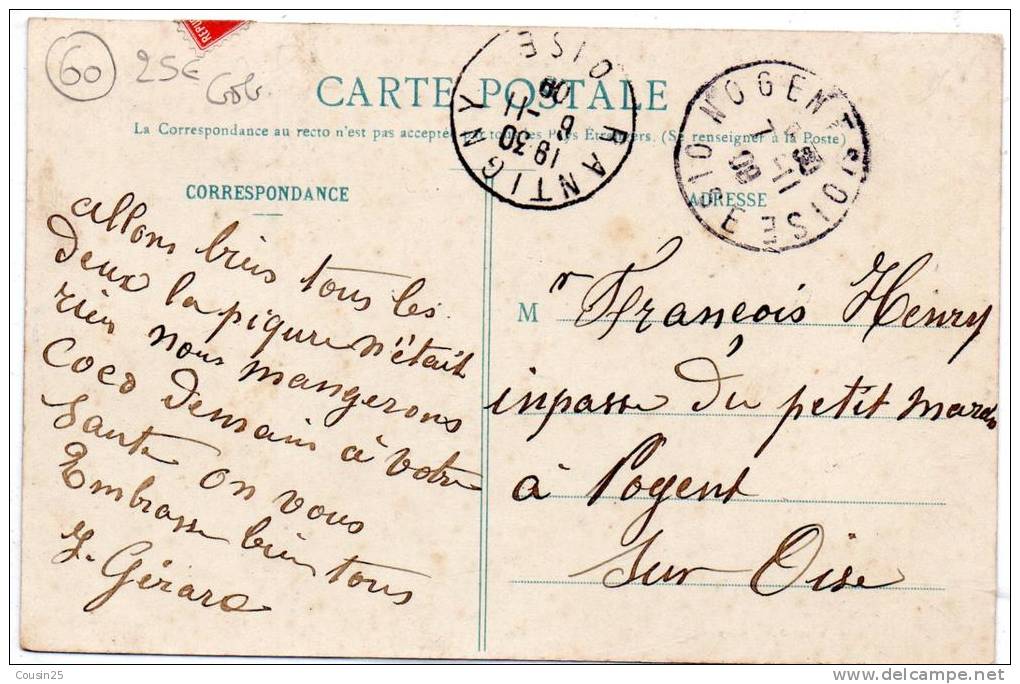 REPUB
60
25c
CARTE POSTALE
La Correspondance au recto n'est pas acceptée par tous les Pays Étrangers. (Se renseigner à la Poste)
RANTIGNY OISE
19 30
6 -11
09
NOGENT S OISE
OISE
7 -11
09
CORRESPONDANCE
allons bien tous les
deux la piqure n'était
rien nous mangerons
Coco Demain à votre
Santé on vous
Embrasse bien tous
J. Gérard
ADRESSE
Mr François Henry
inpasse Du petit
à Nogent
Sur Oise
Cousin25
www.delcampe.net